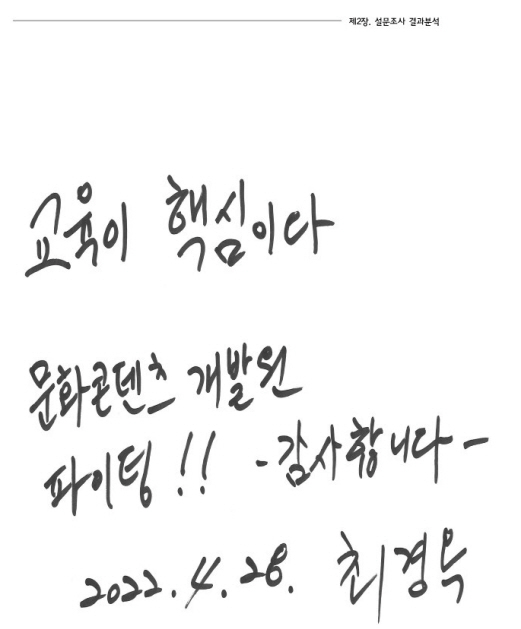 제2장. 설문조사 결과분석
교육이 핵심이다
문화콘텐츠 개발원
파이팅!! -감사합니다-
2022.4.28. 최경욱